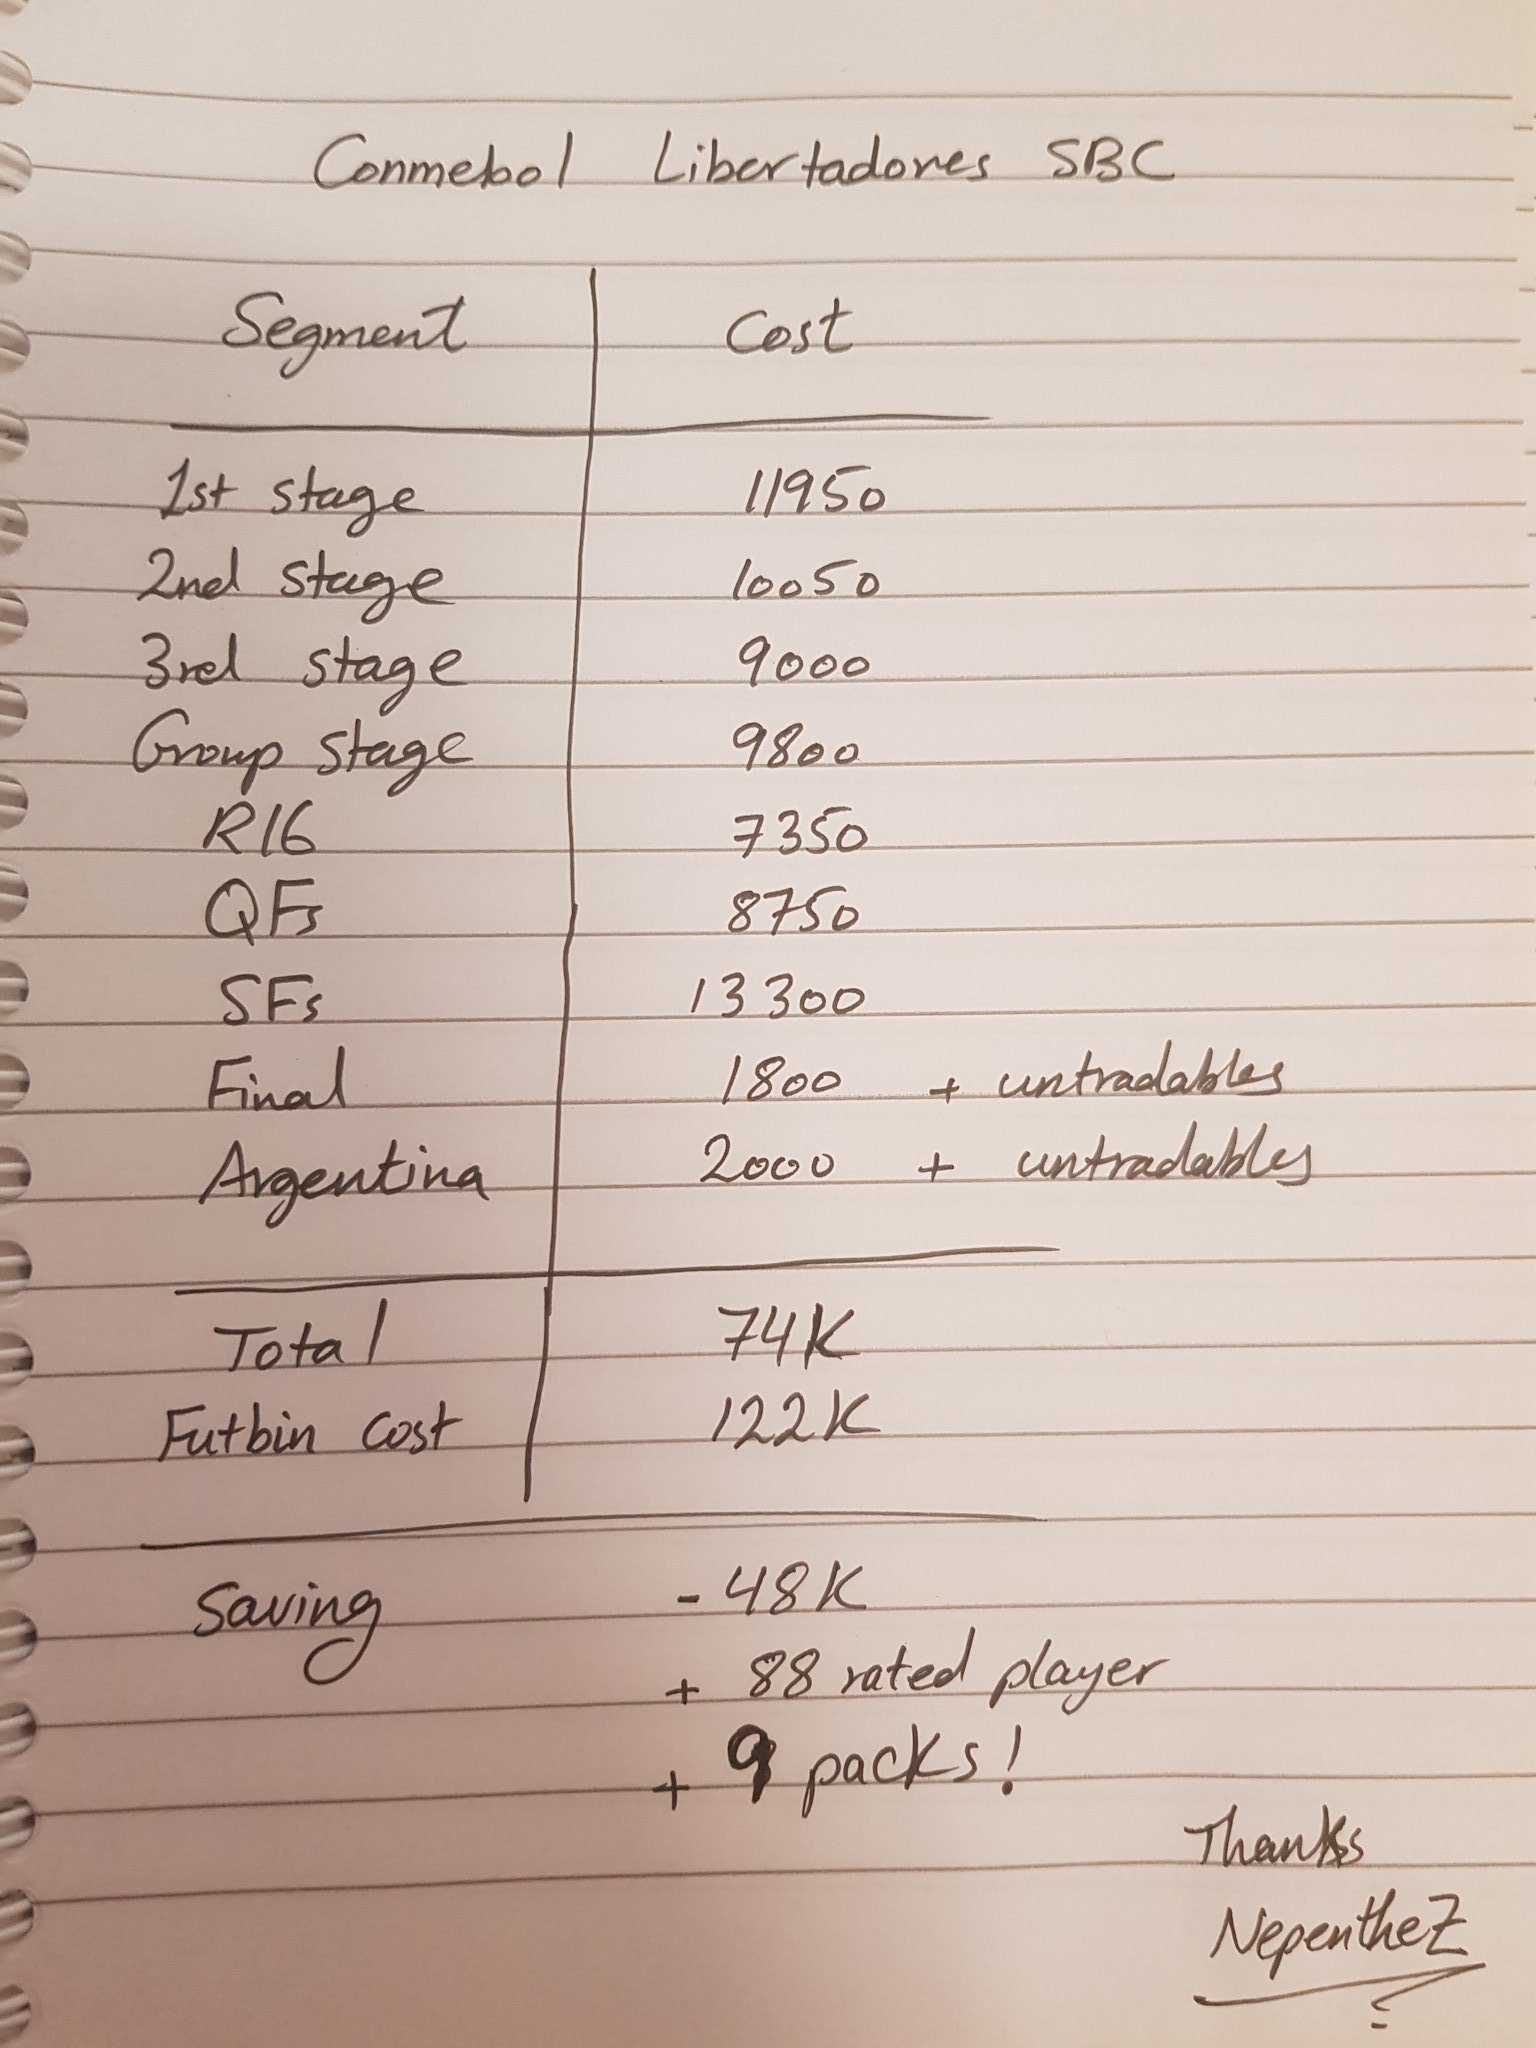 Conmebol Libertadores SBC
Segment Cost
1st stage 11950
2nd stage 10050
3rd stage 9000
Group stage 9800
R16 7350
QFs 8750
SFs 13300
Final 1800 + untradables
Argentina 2000 + untradables
Total 74K
Futbin cost 122K
Saving - 48K
+ 88 rated player
+ 9 packs!
Thanks
NepentheZ